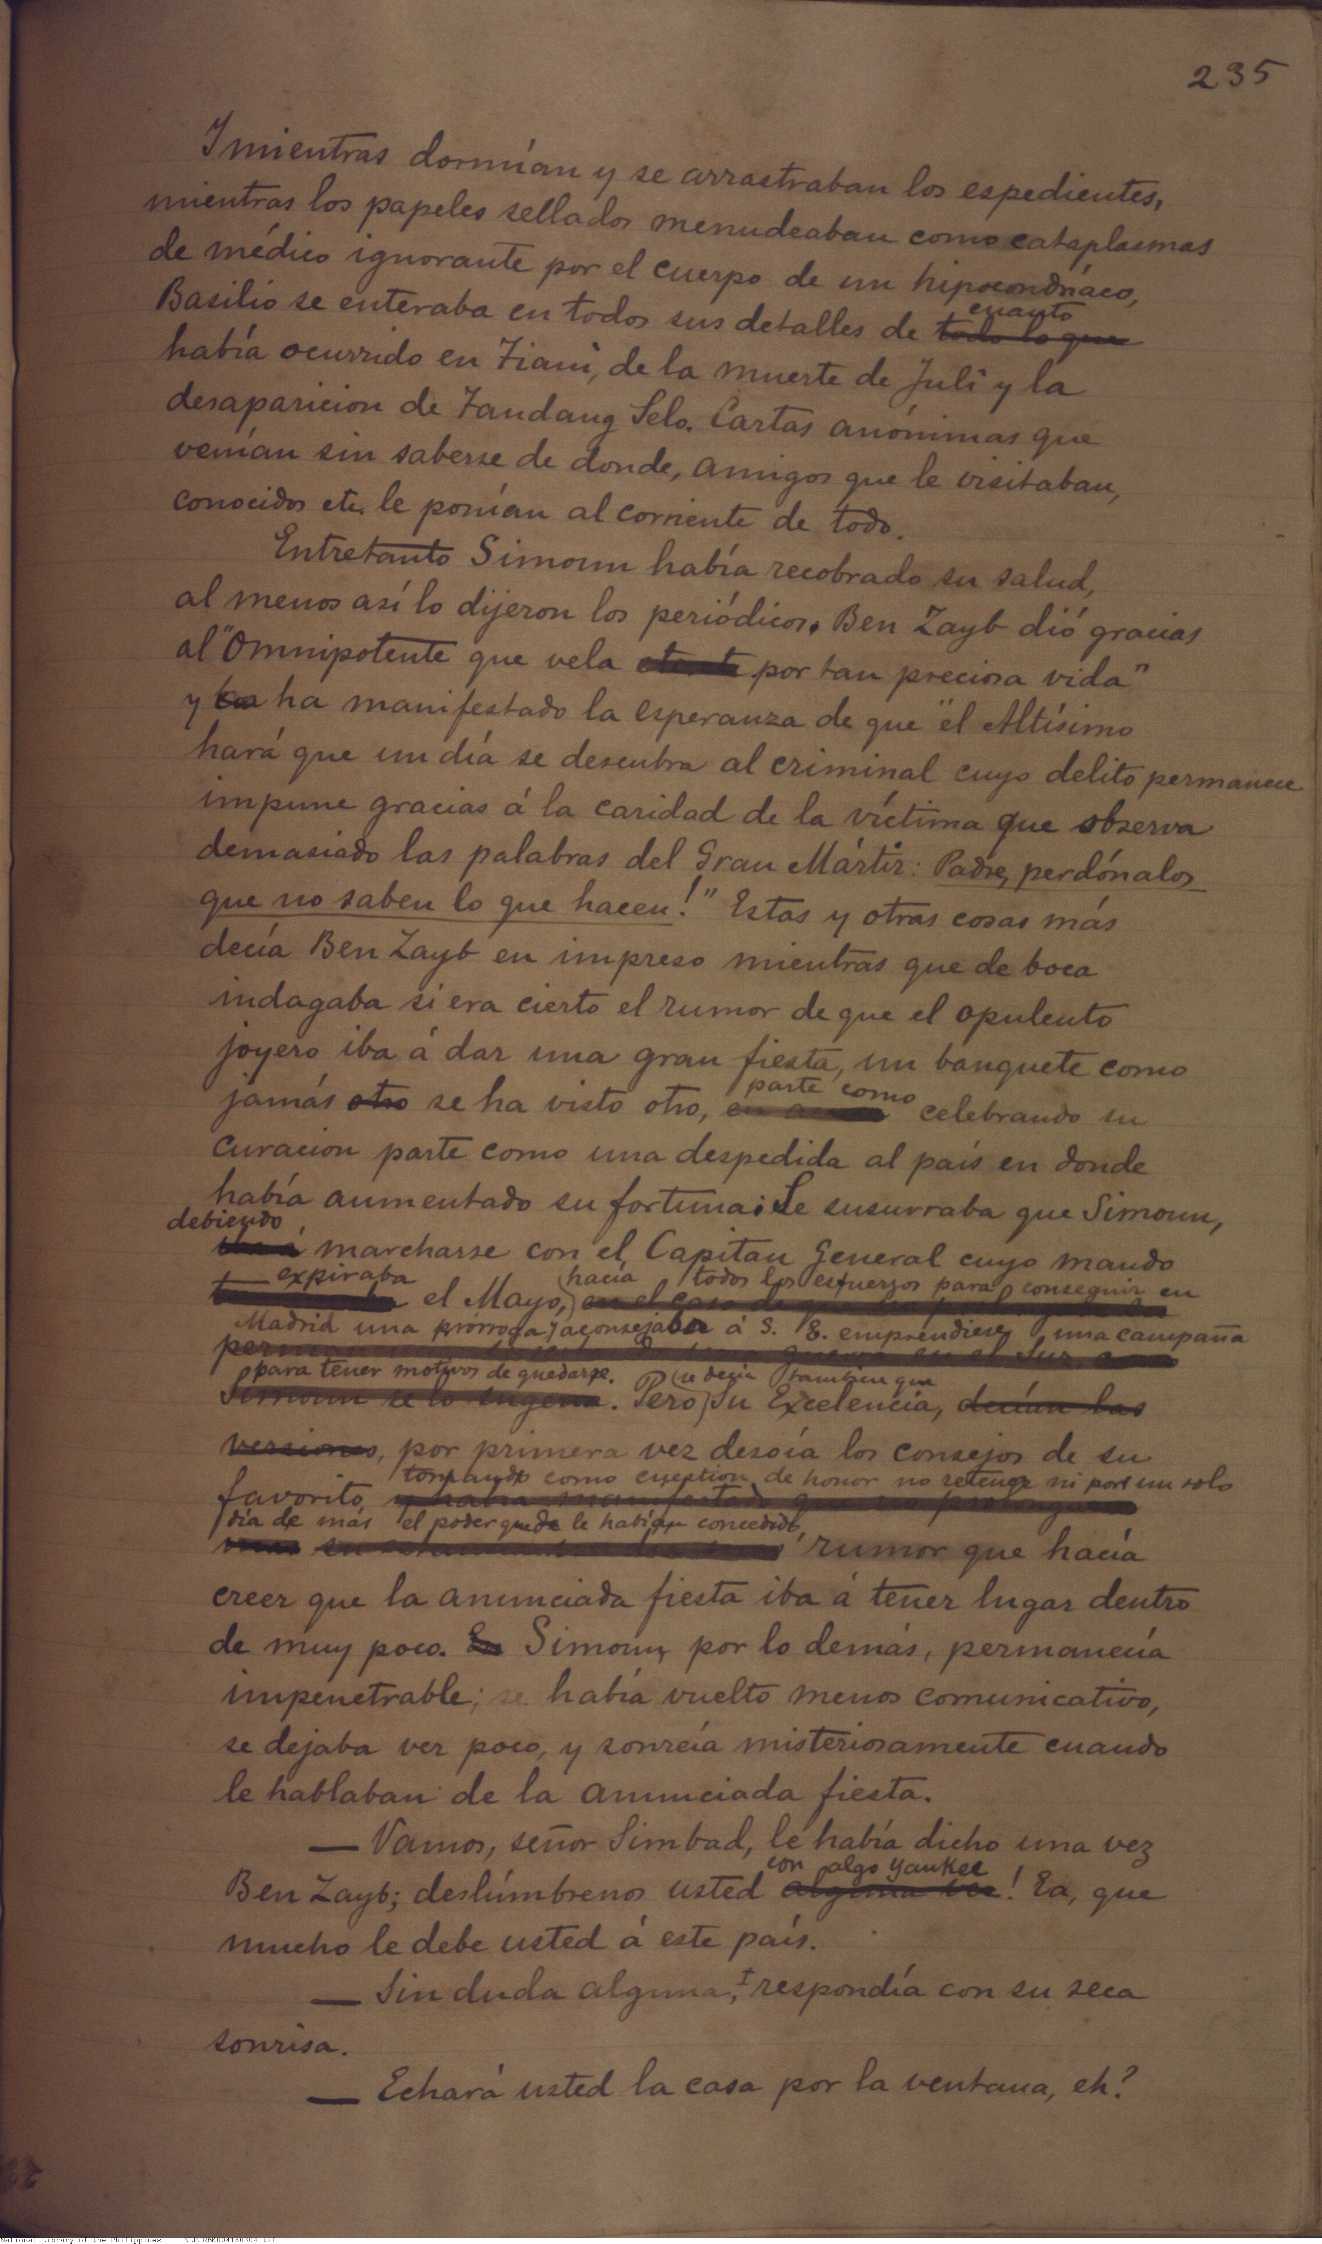 235
Y mientras dormían y se arrastraban los espedientes,
mientras los papeles sellados menudeaban como cataplasmas
de médico ignorante por el cuerpo de un hipocondriaco,
Basilio se enteraba en todos sus detalles de todo lo que
cuanto
había ocurrido en Tiani, de la muerte de Julî y la
desaparicion de Tandang Selo. Cartas anónimas que
venían sin saberse de donde, amigos que le visitaban,
conocidos etc. le ponían al corriente de todo.
Entretanto Simoun había recobrado su salud,
al menos así lo dijeron los periódicos. Ben Zayb dió gracias
al "Omnipotente que vela por tan preciosa vida"
y ha manifestado la esperanza de que "el Altísimo
hará que un día se descubra al criminal cuyo delito permanece
impune gracias á la caridad de la víctima que observa
demasiado las palabras del Gran Mártir: Padre, perdónalos
que no saben lo que hacen!" Estas y otras cosas más
decía Ben Zayb en impreso mientras que de boca
indagaba si era cierto el rumor de que el opulento
joyero iba á dar una gran fiesta, un banquete como
jamás otro se ha visto otro, parte como celebrando su
curacion parte como una despedida al país en donde
había aumentado su fortuna. Se susurraba que Simoun,
debiendo
marcharse con el Capitan General cuyo mando
expiraba el Mayo, hacía todos los esfuerzos para conseguir en
Madrid una prorroga y aconsejaba á S. E. emprendiese una campaña
para tener motivos de quedarse. se decía tambien que
Simoun se lo sugería. Pero Su Excelencia, decían las
versiones, por primera vez desoía los consejos de su
tomando como cuestion de honor no retener ni por un solo
favorito,
día de más el poder que le habían concedido,
rumor que hacía
creer que la anunciada fiesta iba á tener lugar dentro
de muy poco. Simoun, por lo demás, permanecía
impenetrable; se había vuelto menos comunicativo,
se dejaba ver poco, y sonreía misteriosamente cuando
le hablaban de la anunciada fiesta.
— Vamos, señor Simbad, le había dicho una vez
con algo yankee
Ben Zayb; deslúmbrenos usted alguna vez! Ea, que
mucho le debe usted á este país.
— Sin duda alguna, respondía con su seca
sonrisa.
— Echará usted la casa por la ventana, eh?